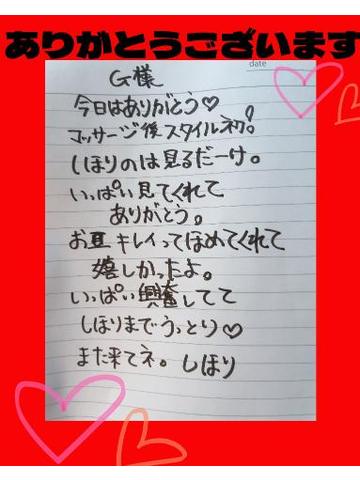 ありがとうございます
date
G様
今日はありがとう♡
マッサージ後スタイルネ♡!
しほりのは見るだーけ。
いっぱい見てくれて
ありがとう。
お豆キレイってほめてくれて
嬉しかったよ。
いっぱい興奮してて
しほりまでうっとり♡
また来てネ。しほり